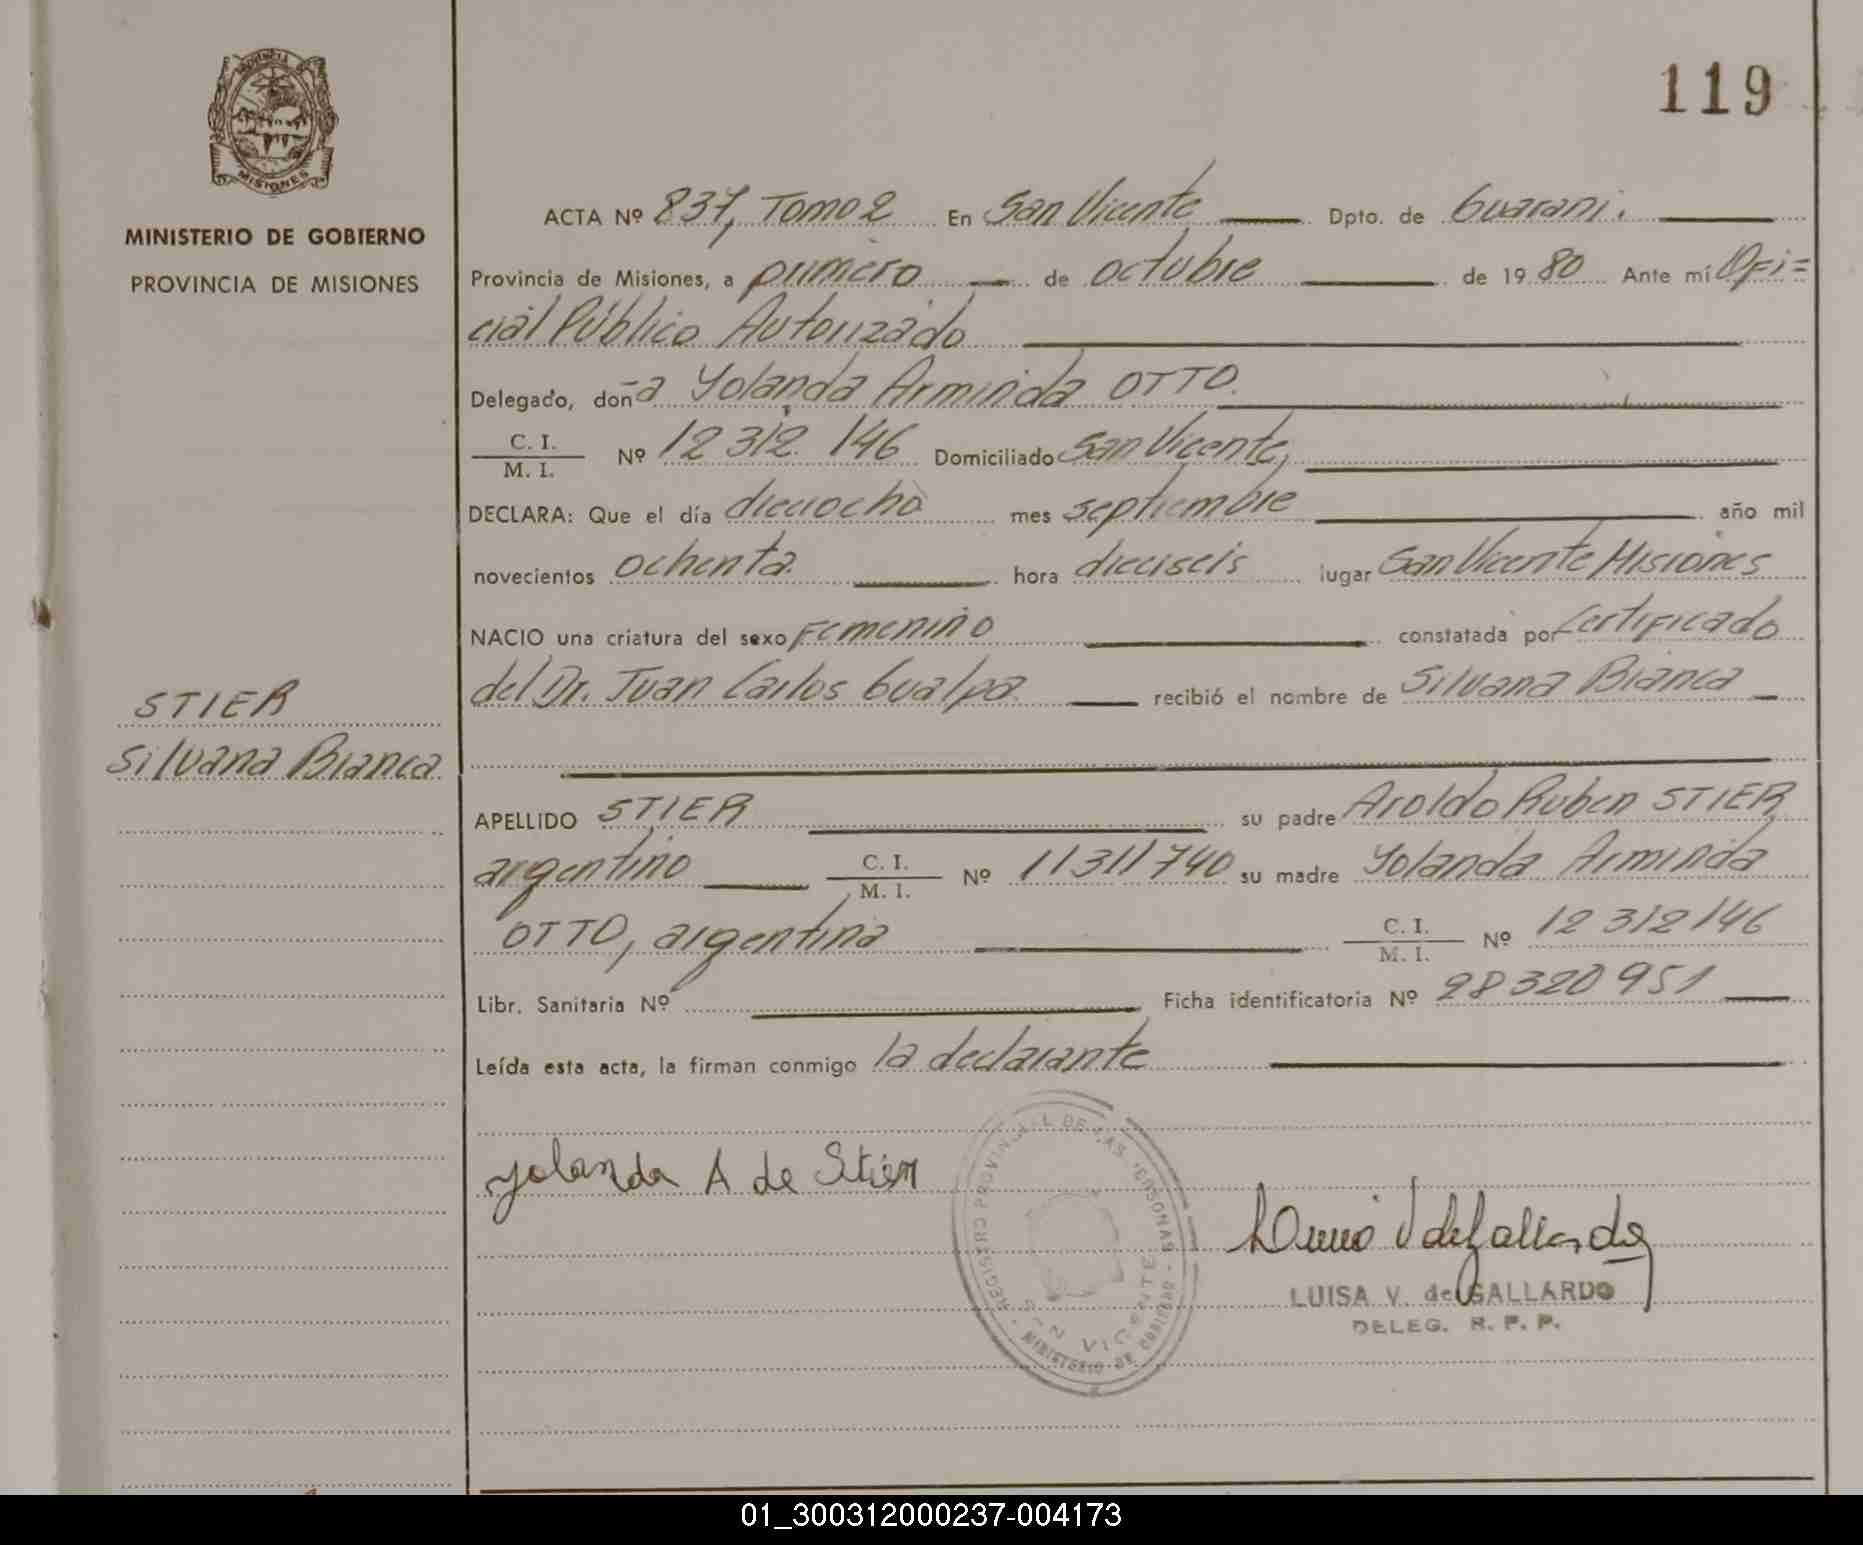 119
PROVINCIA
MISIONES
MINISTERIO DE GOBIERNO
PROVINCIA DE MISIONES
STIER
Silvana Bianca
ACTA Nº 837, Tomo 2 En San Vicente Dpto. de Guaraní.
Provincia de Misiones, a primero de octubre de 1980 Ante mí Ofi=
cial Público Autorizado
Delegado, doña Yolanda Arminda OTTO.
C. I.
M. I. Nº 12 312. 146 Domiciliado San Vicente,
DECLARA: Que el día dieciocho mes septiembre año mil
novecientos ochenta hora dieciseis lugar San Vicente Misiones
NACIO una criatura del sexo Femenino constatada por Certificado
del Dr. Juan Carlos Gualpa recibió el nombre de Silvana Bianca
APELLIDO STIER su padre Aroldo Ruben STIER,
argentino C. I. M. I. Nº 11311740 su madre Yolanda Arminda
OTTO, argentina C. I. M. I. Nº 12 312 146
Libr. Sanitaria Nº Ficha identificatoria Nº 28320951
Leída esta acta, la firman conmigo la declarante
Yolanda A de Stier
REGISTRO PROVINCIAL DE LAS PERSONAS
SAN VICENTE
MINISTERIO DE GOBIERNO
LUISA V. de GALLARDO
DELEG. R. P. P.
01_300312000237-004173